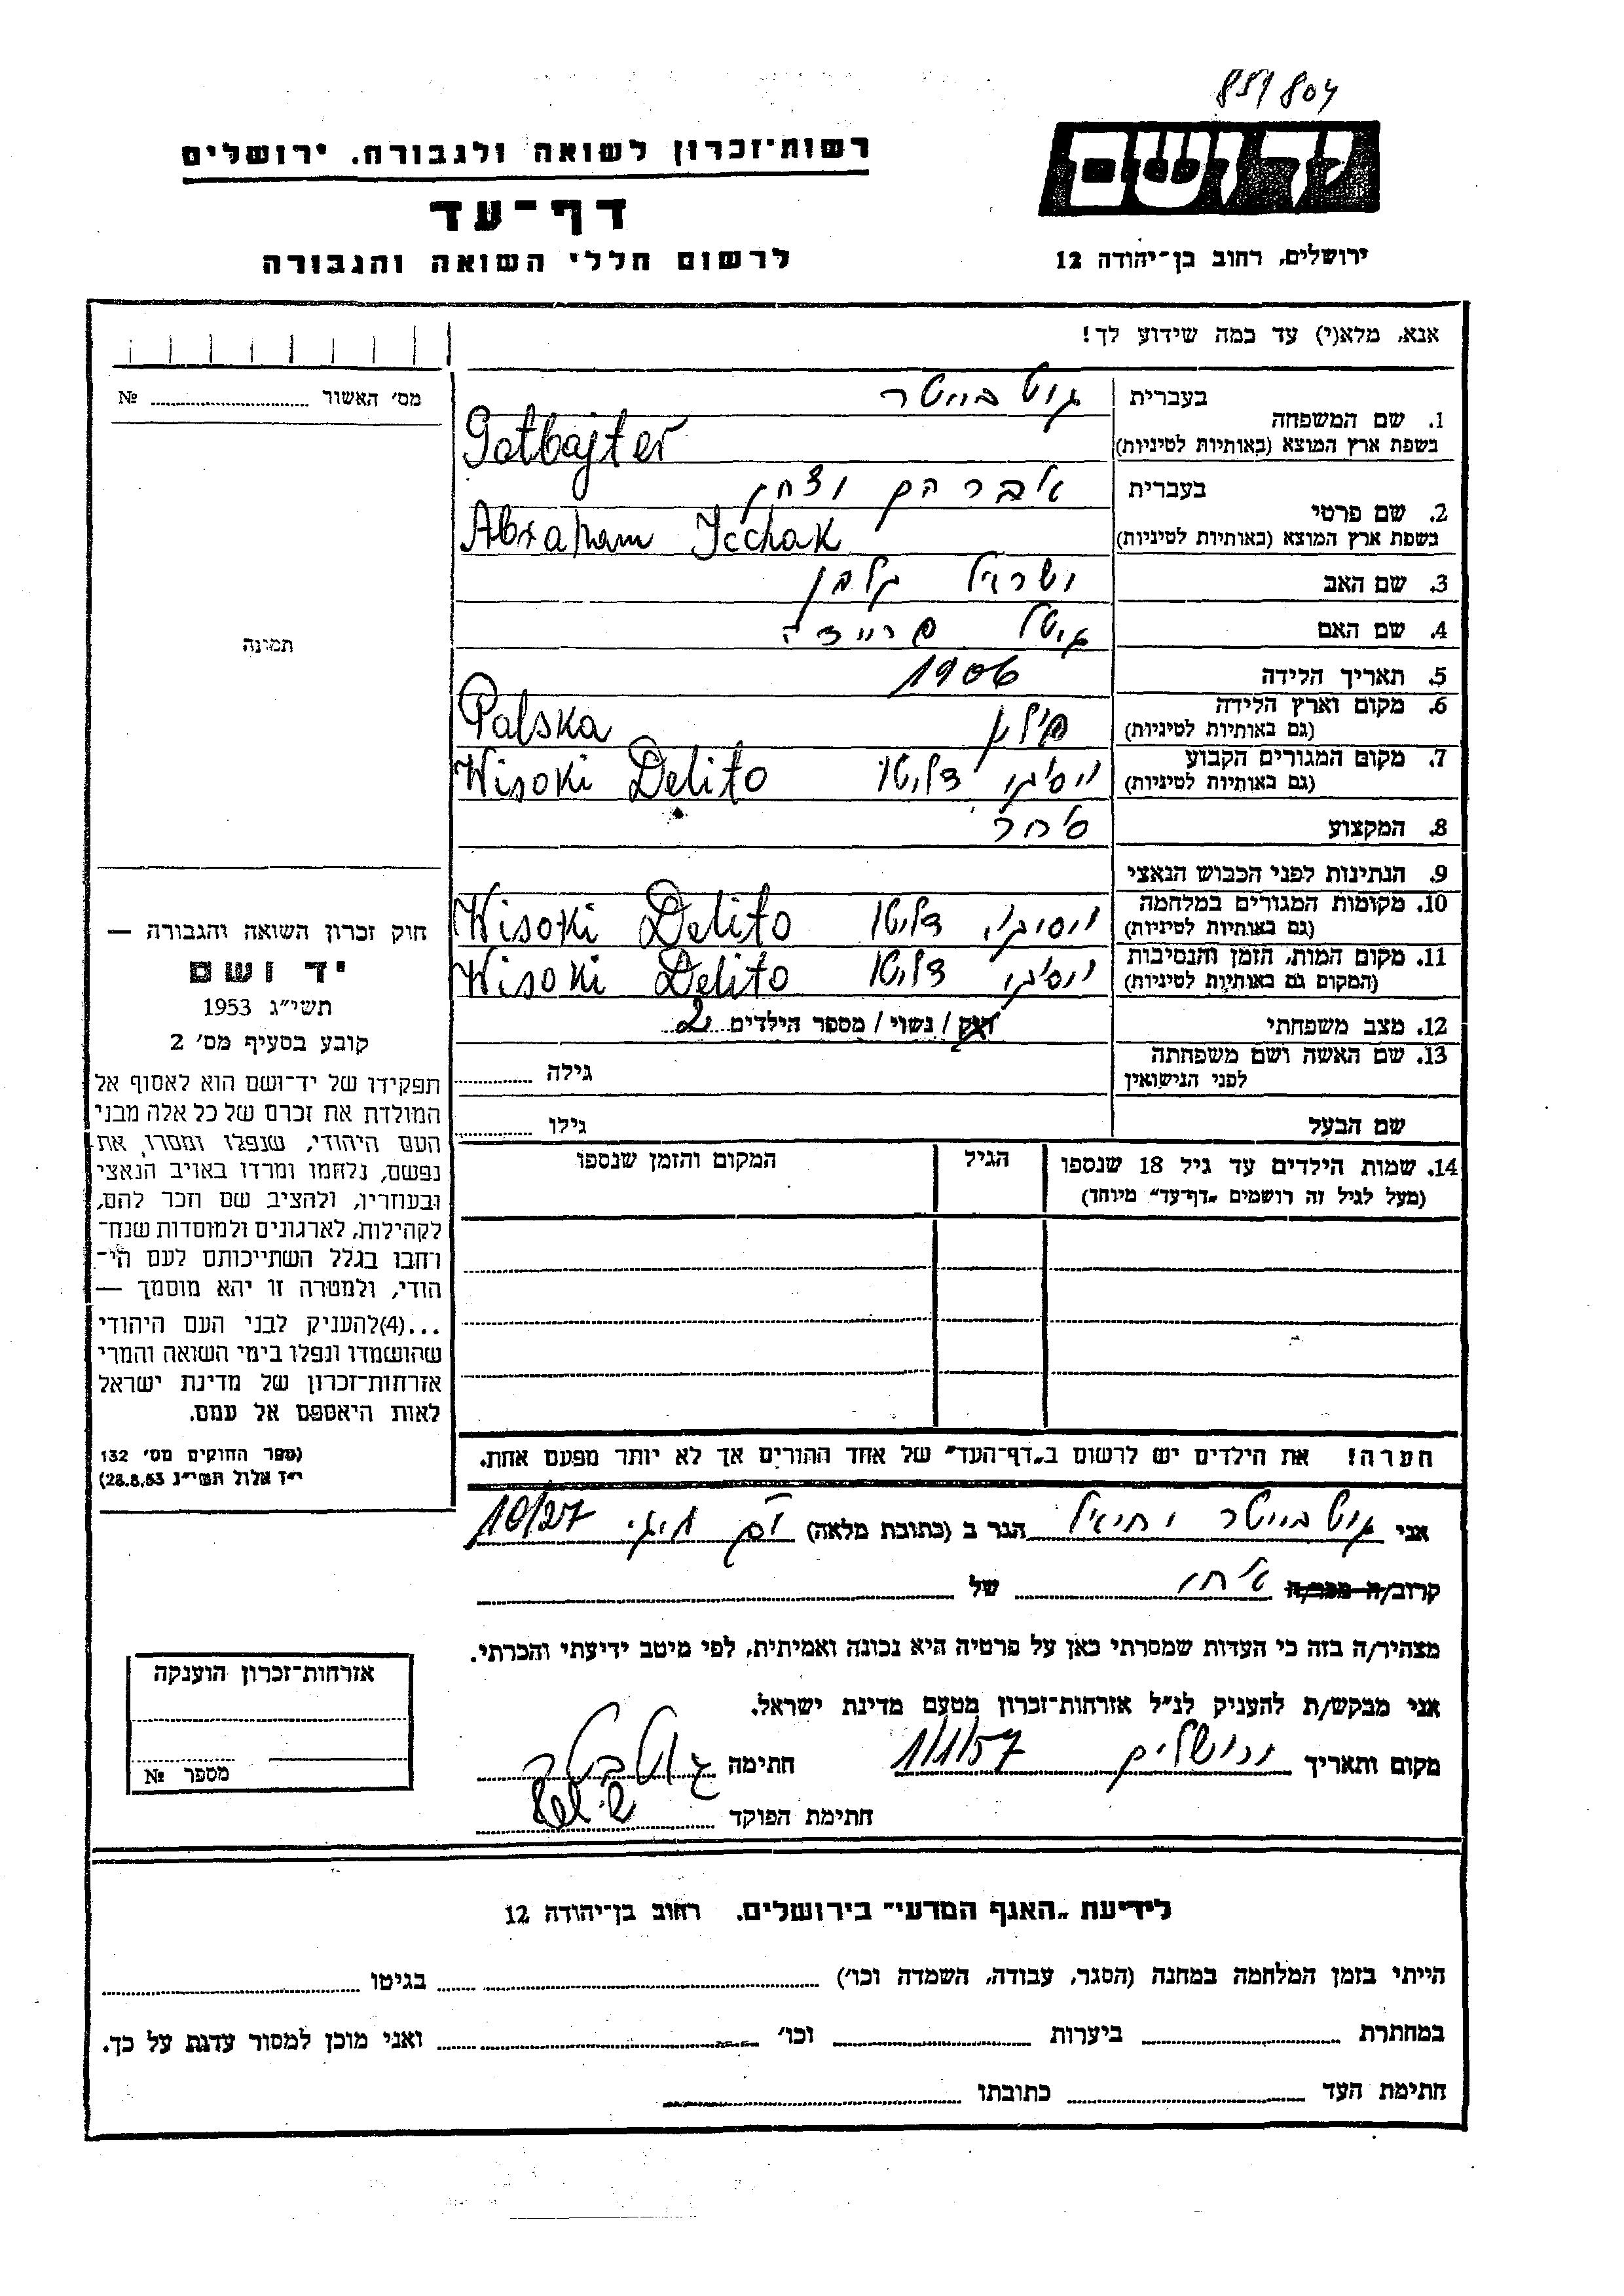 851/804
יד ושם
רשות־זכרון לשואה ולגבורה. ירושלים
דף־עד
לרשום חללי השואה והגבורה
ירושלים, רחוב בן־יהודה 12
אנא, מלא(י) עד כמה שידוע לך!
מס׳ האשור №
תמונה
חוק זכרון השואה והגבורה —
יד ושם
תשי״ג 1953
קובע בסעיף מס׳ 2
תפקידו של יד־ושם הוא לאסוף אל
המולדת את זכרם של כל אלה מבני
העם היהודי, שנפלו ומסרו את
נפשם, נלחמו ומרדו באויב הנאצי
ובעוזריו, ולהציב שם וזכר להם,
לקהילות, לארגונים ולמוסדות שנח־
רחבו בגלל השתייכותם לעם הי־
הודי, ולמטרה זו יהא מוסמך —
...(4)להעניק לבני העם היהודי
שהושמדו ונפלו בימי השואה והמרי
אזרחות־זכרון של מדינת ישראל
לאות היאספם אל עמם.
(ספר החוקים מס׳ 132
י״ז אלול תשי״ג 28.8.53)
1. שם המשפחה בעברית גוטבייטר
בשפת ארץ המוצא (באותיות לטיניות) Gotbajter
2. שם פרטי בעברית אברהם יצחק
בשפת ארץ המוצא (באותיות לטיניות) Abraham Icchak
3. שם האב ישראל
4. שם האם גיטל פריידה
5. תאריך הלידה 1906
6. מקום וארץ הלידה (גם באותיות לטיניות) פולין Polska
7. מקום המגורים הקבוע (גם באותיות לטיניות) ויסוקי דליטו Wisoki Delito
8. המקצוע סוחר
9. הנתינות לפני הכבוש הנאצי
10. מקומות המגורים במלחמה (גם באותיות לטיניות) ויסוקי דליטו Wisoki Delito
11. מקום המות, הזמן והנסיבות (המקום גם באותיות לטיניות) ויסוקי דליטו Wisoki Delito
12. מצב משפחתי רווק / נשוי / מספר הילדים 2
13. שם האשה ושם משפחתה לפני הנישואין גילה
שם הבעל גילו
14. שמות הילדים עד גיל 18 שנספו הגיל המקום והזמן שנספו
(מעל לגיל זה רושמים „דף־עד״ מיוחד)
הערה! את הילדים יש לרשום ב„דף־העד״ של אחד ההורים אך לא יותר מפעם אחת.
אני גוטבייטר יחיאל הגר ב (כתובת מלאה) 10/27
קרוב/ה מכר/ה אחי של
מצהיר/ה בזה כי העדות שמסרתי כאן על פרטיה היא נכונה ואמיתית, לפי מיטב ידיעתי והכרתי.
אני מבקש/ת להעניק לנ״ל אזרחות־זכרון מטעם מדינת ישראל.
מקום ותאריך ירושלים 1/1/57 חתימה
חתימת הפוקד
אזרחות־זכרון הוענקה
מספר №
לידיעת „האגף המדעי״ בירושלים. רחוב בן־יהודה 12
הייתי בזמן המלחמה במחנה (הסגר, עבודה, השמדה וכו׳) בגיטו
במחתרת ביערות וכו׳ ואני מוכן למסור עדות על כך.
חתימת העד כתובתו